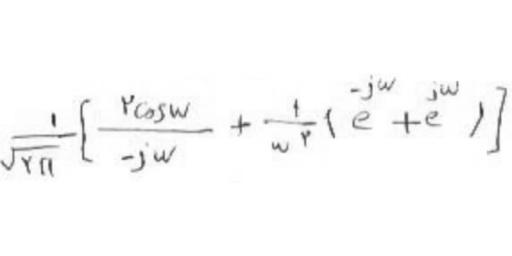 \frac{۱}{\sqrt{۲π}} [ \frac{۲cosw}{-jw} + \frac{۱}{w^۲} ( e^{-jw} + e^{jw} ) ]